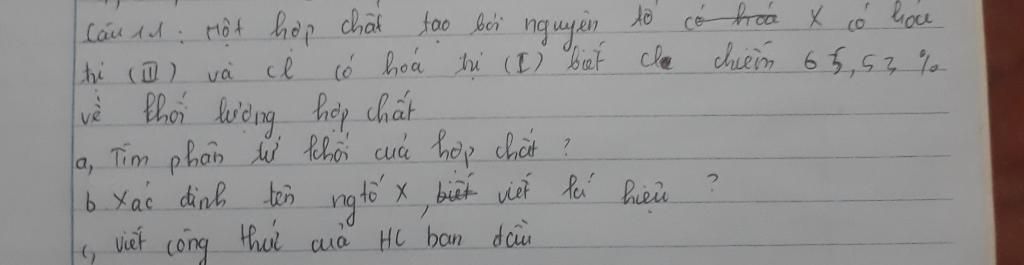 Câu 11: Một hợp chất tạo bởi nguyên tố có hoá X có hóa
trị (II) và cl có hoá trị (I) biết cl chiếm 65,53 %
về khối lượng hợp chất
a, Tìm phân tử khối của hợp chất ?
b Xác định tên ngtố X, biết viết kí hiệu ?
c, viết công thức của HC ban đầu